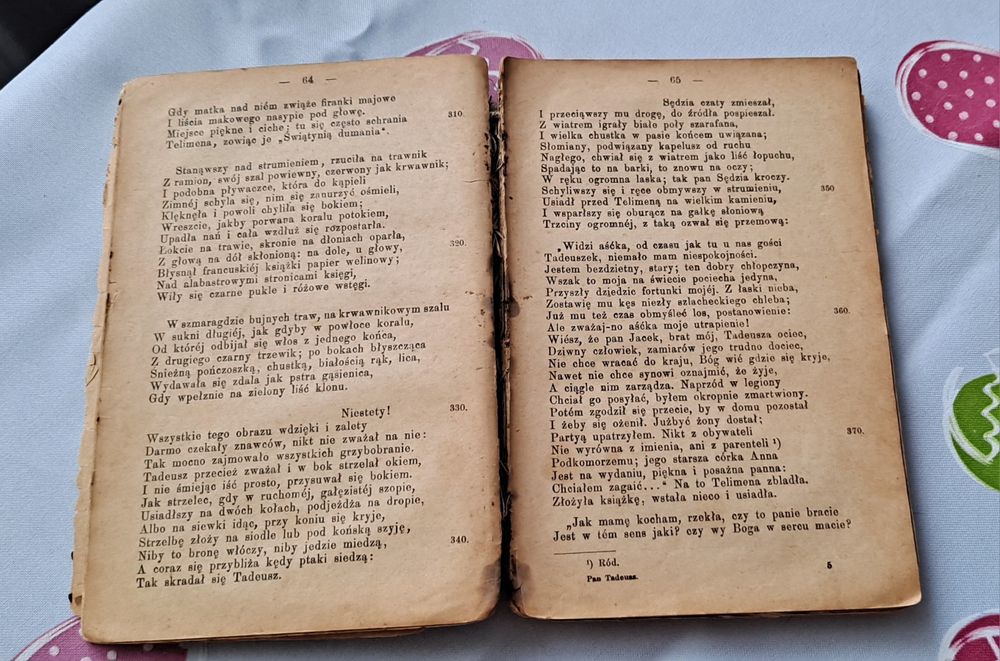 — 64 —
Gdy matka nad niém zwiąże firanki majowe
I liścia makowego nasypie pod głowę.
Miejsce piękne i ciche; tu się często schrania 310.
Telimena, zowiąc je „Świątynią dumania“.
Stanąwszy nad strumieniem, rzuciła na trawnik
Z ramion, swój szal powiewny, czerwony jak krwawnik;
I podobna pływaczce, która do kąpieli
Zimnéj schyla się, nim się zanurzyć ośmieli,
Klęknęła i powoli chyliła się bokiem;
Wreszcie, jakby porwana koralu potokiem,
Upadła nań i cała wzdłuż się rozpostarła.
Łokcie na trawie, skronie na dłoniach oparła,
Z głową na dół skłonioną: na dole, u głowy, 320.
Błysnął francuskiéj książki papier welinowy;
Nad alabastrowymi stronicami księgi,
Wiły się czarne pukle i różowe wstęgi.
W szmaragdzie bujnych traw, na krwawnikowym szalu
W sukni długiéj, jak gdyby w powłoce koralu,
Od któréj odbijał się włos z jednego końca,
Z drugiego czarny trzewik; po bokach błyszcząca
Śnieżną pończoszką, chustką, białością rąk, lica,
Wydawała się zdala jak pstra gąsienica,
Gdy wpełznie na zielony liść klonu.
Niestety! 330.
Wszystkie tego obrazu wdzięki i zalety
Darmo czekały znawców, nikt nie zważał na nie:
Tak mocno zajmowało wszystkich grzybobranie.
Tadeusz przecież zważał i w bok strzelał okiem,
I nie śmiejąc iść prosto, przysuwał się bokiem.
Jak strzelec, gdy w ruchoméj, gałęzistéj szopie,
Usiadłszy na dwóch kołach, podjeżdża na dropie,
Albo na siewki idąc, przy koniu się kryje,
Strzelbę złoży na siodle lub pod końską szyję,
Niby to bronę włóczy, niby jedzie miedzą, 340.
A coraz się przybliża kędy ptaki siedzą:
Tak skradał się Tadeusz.
— 65 —
Sędzia czaty zmieszał,
I przeciąwszy mu drogę, do źródła pospieszał.
Z wiatrem igrały białe poły szarafana,
I wielka chustka w pasie końcem uwiązana;
Słomiany, podwiązany kapelusz od ruchu
Nagłego, chwiał się z wiatrem jako liść łopuchu,
Spadając to na barki, to znowu na oczy;
W ręku ogromna laska; tak pan Sędzia kroczy.
Schyliwszy się i ręce obmywszy w strumieniu, 350
Usiadł przed Telimeną na wielkim kamieniu,
I wsparłszy się oburącz na gałkę słoniową
Trzciny ogromnéj, z taką ozwał się przemową:
„Widzi aśćka, od czasu jak tu u nas gości
Tadeuszek, niemało mam niespokojności.
Jestem bezdzietny, stary; ten dobry chłopczyna,
Wszak to moja na świecie pociecha jedyna,
Przyszły dziedzic fortunki mojéj. Z łaski nieba,
Zostawię mu kęs niezły szlacheckiego chleba;
Już mu też czas obmyśleć los, postanowienie: 360.
Ale zważaj-no aśćka moje utrapienie!
Wiész, że pan Jacek, brat mój, Tadeusza ociec,
Dziwny człowiek, zamiarów jego trudno dociec,
Nie chce wracać do kraju, Bóg wié gdzie się kryje,
Nawet nie chce synowi oznajmić, że żyje,
A ciągle nim zarządza. Naprzód w legiony
Chciał go posyłać, byłem okropnie zmartwiony.
Potém zgodził się przecie, by w domu pozostał
I żeby się ożenił. Jużbyć żonę dostał;
Partyą upatrzyłem. Nikt z obywateli 370.
Nie wyrówna z imienia, ani z parenteli ¹)
Podkomorzemu; jego starsza córka Anna
Jest na wydaniu, piękna i posażna panna:
Chciałem zagaić...“ Na to Telimena zbladła.
Złożyła książkę, wstała nieco i usiadła.
„Jak mamę kocham, rzekła, czy to panie bracie
Jest w tém sens jaki? czy wy Boga w sercu macie?
¹) Ród.
Pan Tadeusz. 5